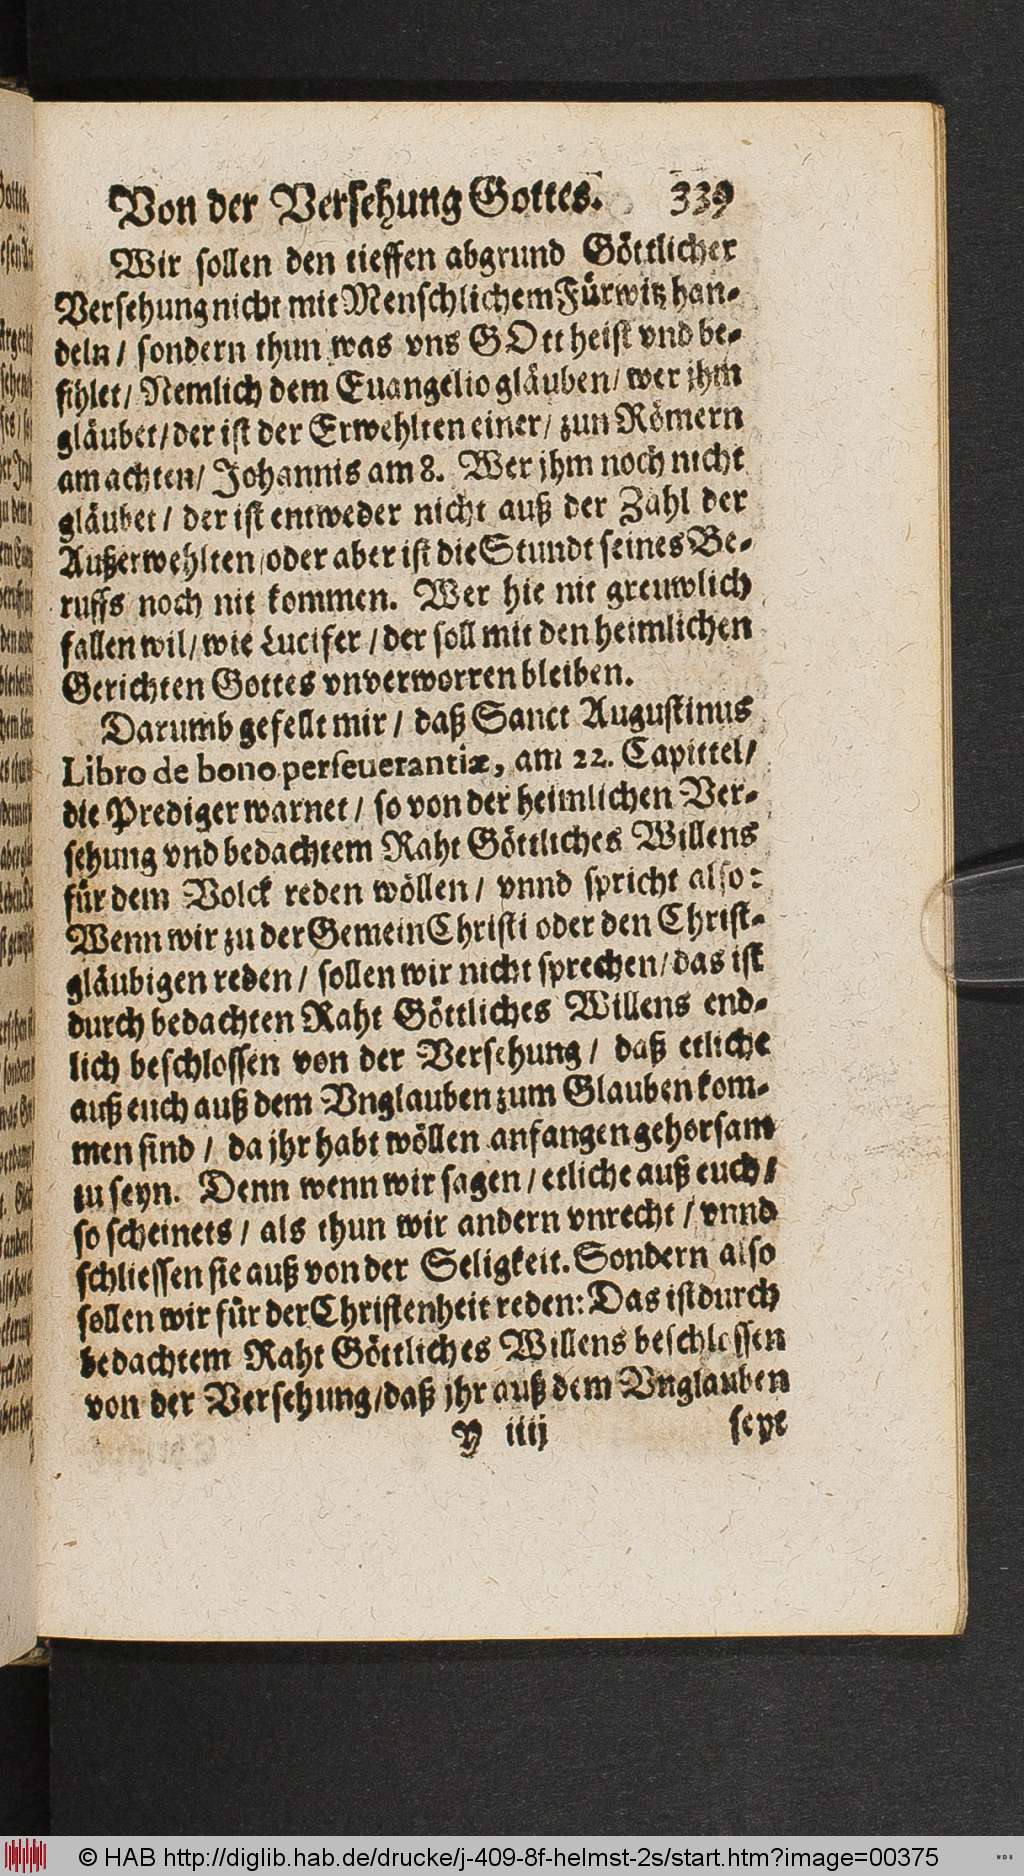 Von der Versehung Gottes. 339
Wir sollen den tieffen abgrund Göttlicher
Versehung nicht mit Menschlichem Fürwitz han-
deln / sondern thun was vns GOtt heist vnd be-
fihlet / Nemlich dem Euangelio gläuben / wer jhm
gläubet / der ist der Erwehlten einer / zun Römern
am achten / Johannis am 8. Wer jhm noch nicht
gläubet / der ist entweder nicht auß der Zahl der
Außerwehlten / oder aber ist die Stundt seines Be-
ruffs noch nit kommen. Wer hie nit greuwlich
fallen wil / wie Lucifer / der soll mit den heimlichen
Gerichten Gottes vnverworren bleiben.
Darumb gefellt mir / daß Sanct Augustinus
Libro de bono perseuerantiæ, am 22. Capittel /
die Prediger warnet / so von der heimlichen Ver-
sehung vnd bedachtem Raht Göttliches Willens
für dem Volck reden wöllen / vnnd spricht also:
Wenn wir zu der Gemein Christi oder den Christ-
gläubigen reden / sollen wir nicht sprechen / das ist
durch bedachten Raht Göttliches Willens end-
lich beschlossen von der Versehung / daß etliche
auß euch auß dem Vnglauben zum Glauben kom-
men sind / da jhr habt wöllen anfangen gehorsam
zu seyn. Denn wenn wir sagen / etliche auß euch /
so scheinets / als thun wir andern vnrecht / vnnd
schliessen sie auß von der Seligkeit. Sondern also
sollen wir für der Christenheit reden: Das ist durch
bedachtem Raht Göttliches Willens beschlossen
von der Versehung / daß jhr auß dem Vnglauben
Y iiij seye
© HAB http://diglib.hab.de/drucke/j-409-8f-helmst-2s/start.htm?image=00375